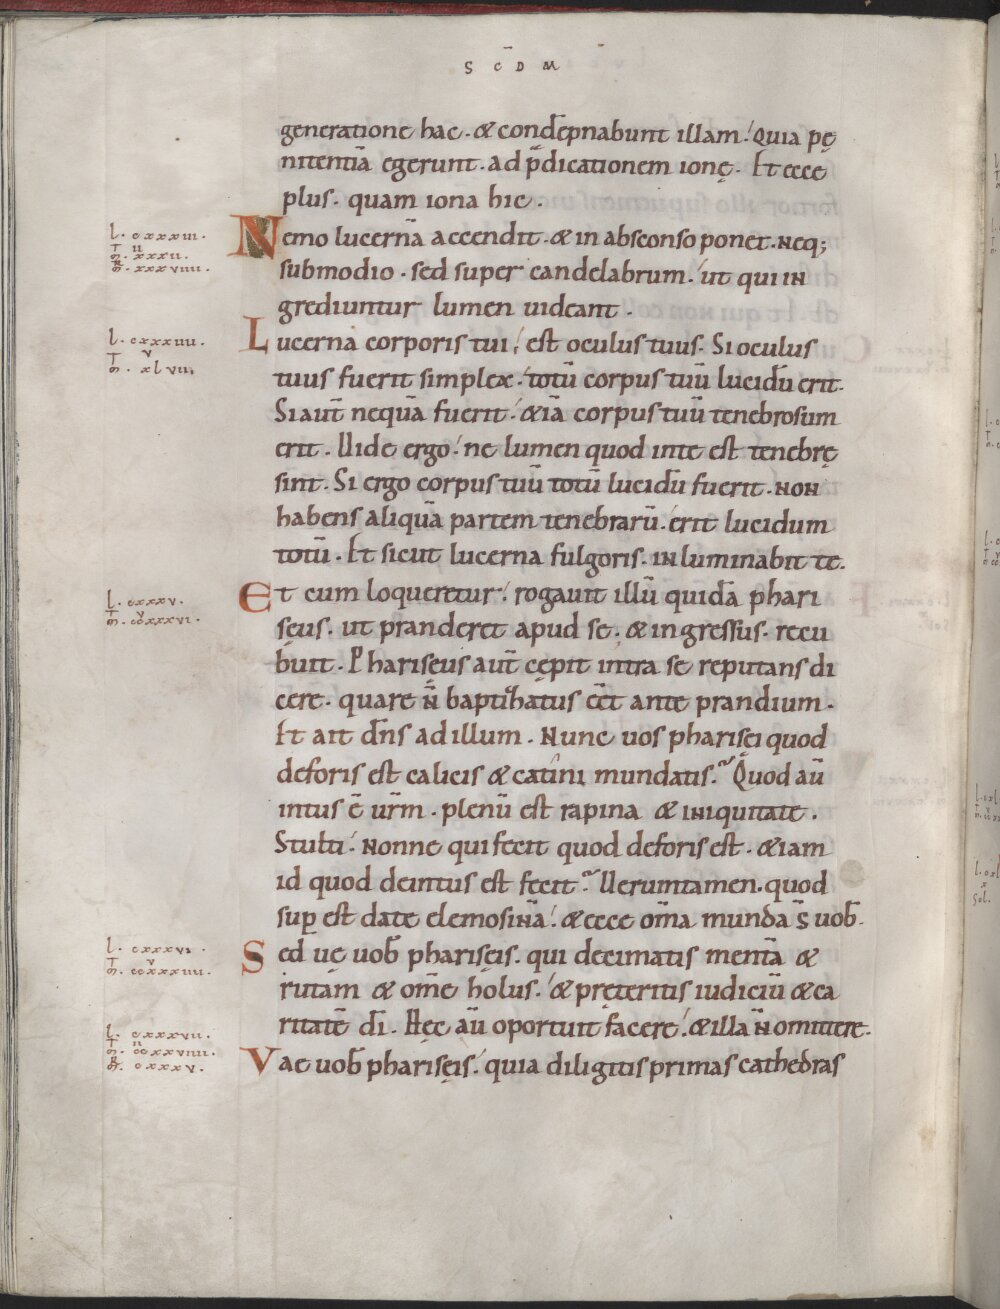 S C̄ D M
generatione hac · & condēpnabunt illam ! Quia pę
nitentiā egerunt · ad p̄dicationem ionę · Et ecce
plus · quam iona hic ·
l · cxxxiii ·
T ii
m̄ · xxxii ·
m̄ · xxxviiii ·
Nemo lucernā accendit · & in absconso ponet · neq;
submodio · sed super candelabrum ! ut qui in
grediuntur lumen uideant ·
l · cxxxiiii ·
T v
m̄ · xlvii ·
Lucerna corporis tui ! est oculus tuus · Si oculus
tuus fuerit simplex ! totū corpus tuū lucidū erit ·
Si aut̄ nequā fuerit ! &iā corpus tuū tenebrosum
erit · Uide ergo ! ne lumen quod inte est tenebrę
sint · Si ergo corpus tuū totū lucidū fuerit · non
habens aliquā partem tenebrarū · erit lucidum
totū · Et sicut lucerna fulgoris · inluminabit te ·
l · cxxxv ·
T v
m̄ · ccxxxvi ·
Et cum loqueretur ! rogauit illū quidā phari
sęus · ut pranderet apud se · & ingressus · recu
buit · Pharisęus aut̄ cępit intra se reputans di
cere · quare n̄ baptizatus ēet ante prandium ·
Et ait dn̄s ad illum · Nunc uos pharisęi quod
deforis est calicis & catini mundatis · Quod aū
intus ē ur̄m · plenū est rapina & iniquitate ·
Stulti ! nonne qui fecit quod deforis est · &iam
id quod deintus est fecit · Ueruntamen · quod
sup̄ est date elemosinā ! & ecce om̄a munda s̄ uob̄ ·
l · cxxxvi ·
T v
m̄ · ccxxxiiii ·
Sed uę uob̄ pharisęis · qui decimatis mentā &
rutam & om̄e holus ! & pręteritis iudiciū & ca
ritatē dī · Hęc aū oportuit facere ! & illa n̄ omittere ·
l · cxxxvii ·
T ii
m̄ · ccxxviiii ·
m̄ · cxxxv ·
Vae uob̄ pharisęis ! quia diligitis primas cathedras